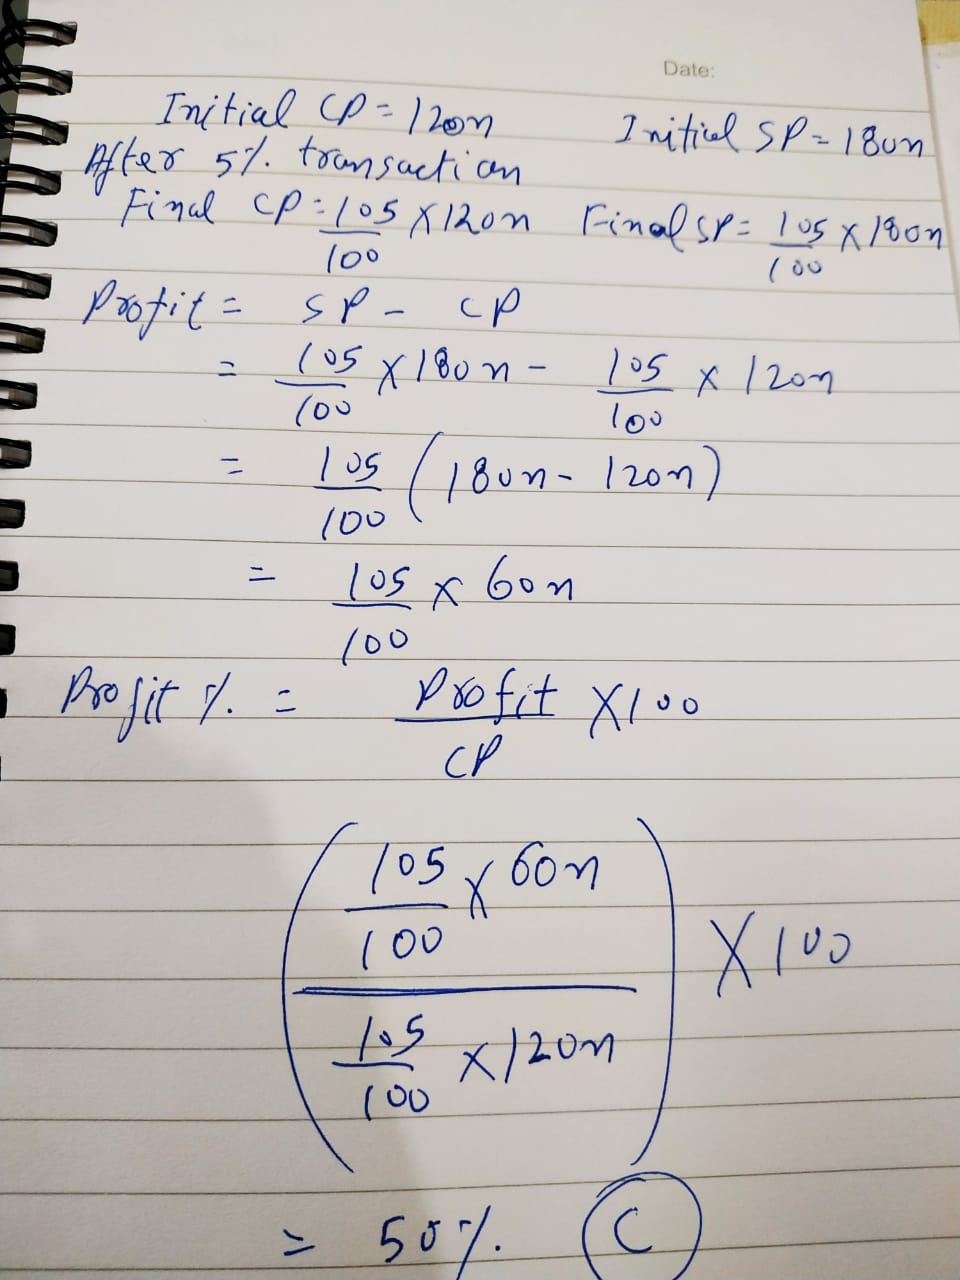 Date:
Initial CP = 120n Initial SP = 180n
After 5% transaction
Final CP = 105/100 X 120n Final SP = 105/100 X 180n
Profit = SP - CP
= 105/100 X 180n - 105/100 X 120n
= 105/100 (180n - 120n)
= 105/100 X 60n
Profit % = Profit/CP X 100
(105/100 X 60n / 105/100 X 120n) X 100
= 50% C